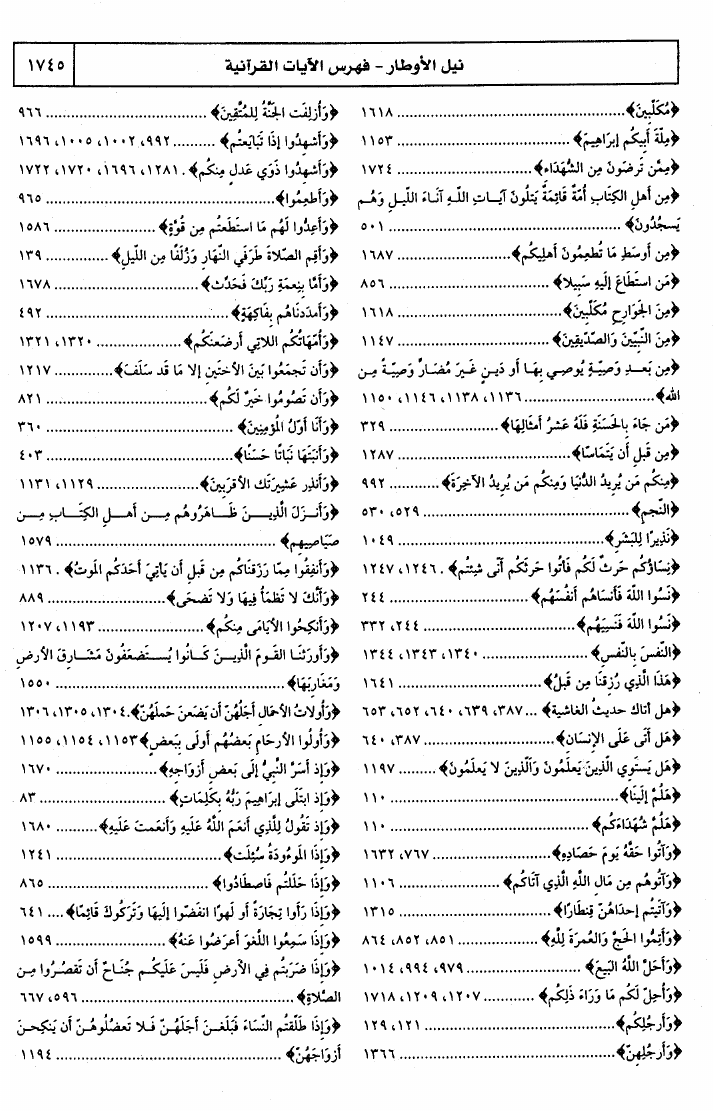 نيل الأوطار - فهرس الآيات القرآنية ١٧٤٥
﴿مُكَلِّبِينَ﴾ ١٦١٨
﴿مِلَّةَ أَبِيكُم إِبرَاهِيمَ﴾ ١١٥٣
﴿مِمَّن تَرضَونَ مِنَ الشُّهَدَاءِ﴾ ١٧٢٤
﴿مِن أَهلِ الكِتَابِ أُمَّةٌ قَائِمَةٌ يَتلُونَ آيَاتِ اللهِ آنَاءَ اللَّيلِ وَهُم
يَسجُدُونَ﴾ ٥٠١
﴿مِن أَوسَطِ مَا تُطعِمُونَ أَهلِيكُم﴾ ١٦٨٧
﴿مَن استَطَاعَ إِلَيهِ سَبِيلا﴾ ٨٥٦
﴿مِنَ الجَوَارِحِ مُكَلِّبِينَ﴾ ١٦١٨
﴿مِنَ النَّبِيِّينَ وَالصِّدِّيقِينَ﴾ ١١٤٧
﴿مِن بَعدِ وَصِيَّةٍ يُوصِي بِهَا أَو دَينٍ غَيرَ مُضَارٍّ وَصِيَّةً مِن
الله﴾ ١١٣٦، ١١٣٨، ١١٤٦، ١١٥٠
﴿مَن جَاءَ بِالحَسَنَةِ فَلَهُ عَشرُ أَمثَالِهَا﴾ ٣٢٩
﴿مِن قَبلِ أَن يَتَمَاسَّا﴾ ١٢٨٧
﴿مِنكُم مَن يُرِيدُ الدُّنيَا وَمِنكُم مَن يُرِيدُ الآخِرَةَ﴾ ٩٩٢
﴿النَّجم﴾ ٥٢٩، ٥٣٠
﴿نَذِيرًا لِلبَشَرِ﴾ ١٠٤٩
﴿نِسَاؤُكُم حَرثٌ لَكُم فَأتُوا حَرثَكُم أَنَّى شِئتُم﴾ . ١٢٤٦، ١٢٤٧
﴿نَسُوا اللهَ فَأَنسَاهُم أَنفُسَهُم﴾ ٢٤٤
﴿نَسُوا اللهَ فَنَسِيَهُم﴾ ٢٤٤، ٣٣٢
﴿النَّفسَ بِالنَّفسِ﴾ ١٣٤٠، ١٣٤٣، ١٣٤٤
﴿هَذَا الَّذِي رُزِقنَا مِن قَبلُ﴾ ١٦٤١
﴿هل أتاك حديثُ الغاشية﴾ ... ٣٨٧، ٦٣٩، ٦٤٠، ٦٥٢، ٦٥٣
﴿هَل أَتَى عَلَى الإِنسَانِ﴾ ٣٨٧، ٦٤٠
﴿هَل يَستَوِي الَّذِينَ يَعلَمُونَ وَالَّذِينَ لا يَعلَمُونَ﴾ ١١٩٧
﴿هَلُمَّ إِلَينَا﴾ ١١٠
﴿هَلُمَّ شُهَدَاءَكُم﴾ ١١٠
﴿وَآتُوا حَقَّهُ يَومَ حَصَادِهِ﴾ ٧٦٧، ١٦٣٢
﴿وَآتُوهُم مِن مَالِ اللهِ الَّذِي آتَاكُم﴾ ١١٠٦
﴿وَآتَيتُم إِحدَاهُنَّ قِنطَارًا﴾ ١٣١٥
﴿وَأَتِمُّوا الحَجَّ وَالعُمرَةَ لِلَّهِ﴾ ٨٥١، ٨٥٢، ٨٦٤
﴿وَأَحَلَّ اللهُ البَيعَ﴾ ٩٧٩، ٩٩٤، ١٠١٤
﴿وَأُحِلَّ لَكُم مَا وَرَاءَ ذَلِكُم﴾ ١٢٠٧، ١٢٠٩، ١٧١٨
﴿وَأَرجُلِكُم﴾ ١٢١، ١٢٩
﴿وَأَرجُلِهِنَّ﴾ ١٣٦٦
﴿وَأُزلِفَت الجَنَّةُ لِلمُتَّقِينَ﴾ ٩٦٦
﴿وَأَشهِدُوا إِذَا تَبَايَعتُم﴾ ٩٩٢، ١٠٠٢، ١٠٠٥، ١٦٩٦
﴿وَأَشهِدُوا ذَوَي عَدلٍ مِنكُم﴾ . ١٢٨١، ١٦٩٦، ١٧٢٠، ١٧٢٢
﴿وَأَطعِمُوا﴾ ٩٦٥
﴿وَأَعِدُّوا لَهُم مَا استَطَعتُم مِن قُوَّةٍ﴾ ١٥٨٦
﴿وَأَقِم الصَّلاةَ طَرَفَي النَّهَارِ وَزُلَفًا مِن اللَّيلِ﴾ ١٣٩
﴿وَأَمَّا بِنِعمَةِ رَبِّكَ فَحَدِّث﴾ ١٦٧٨
﴿وَأَمدَدنَاهُم بِفَاكِهَةٍ﴾ ٤٩٢
﴿وَأُمَّهَاتُكُم اللاتِي أَرضَعنَكُم﴾ ١٣٢٠، ١٣٢١
﴿وَأَن تَجمَعُوا بَينَ الأُختَينِ إِلا مَا قَد سَلَفَ﴾ ١٢١٧
﴿وَأَن تَصُومُوا خَيرٌ لَكُم﴾ ٨٢١
﴿وَأَنَا أَوَّلُ المُؤمِنِينَ﴾ ٣٦٠
﴿وَأَنبَتَهَا نَبَاتًا حَسَنًا﴾ ٤٠٣
﴿وَأَنذِر عَشِيرَتَكَ الأَقرَبِينَ﴾ ١١٢٩، ١١٣١
﴿وَأَنزَلَ الَّذِينَ ظَاهَرُوهُم مِن أَهلِ الكِتَابِ مِن
صَيَاصِيهِم﴾ ١٥٧٩
﴿وَأَنفِقُوا مِمَّا رَزَقنَاكُم مِن قَبلِ أَن يَأتِيَ أَحَدَكُم المَوتُ﴾ . ١١٣٦
﴿وَأَنَّكَ لا تَظمَأُ فِيهَا وَلا تَضحَى﴾ ٨٨٩
﴿وَأَنكِحُوا الأَيَامَى مِنكُم﴾ ١١٩٣، ١٢٠٧
﴿وَأَورَثنَا القَومَ الَّذِينَ كَانُوا يُستَضعَفُونَ مَشَارِقَ الأَرضِ
وَمَغَارِبَهَا﴾ ١٥٥٠
﴿وَأُولاتُ الأَحمَالِ أَجَلُهُنَّ أَن يَضَعنَ حَملَهُنَّ﴾. ١٣٠٤، ١٣٠٥، ١٣٠٦
﴿وَأُولُوا الأَرحَامِ بَعضُهُم أَولَى بِبَعضٍ﴾ ١١٥٣، ١١٥٤، ١١٥٥
﴿وَإِذ أَسَرَّ النَّبِيُّ إِلَى بَعضِ أَزوَاجِهِ﴾ ١٦٧٠
﴿وَإِذ ابتَلَى إِبرَاهِيمَ رَبُّهُ بِكَلِمَاتٍ﴾ ٨٣
﴿وَإِذ تَقُولُ لِلَّذِي أَنعَمَ اللهُ عَلَيهِ وَأَنعَمتَ عَلَيهِ﴾ ١٦٨٠
﴿وَإِذَا المَوءُودَةُ سُئِلَت﴾ ١٢٤١
﴿وَإِذَا حَلَلتُم فَاصطَادُوا﴾ ٨٦٥
﴿وَإِذَا رَأَوا تِجَارَةً أَو لَهوًا انفَضُّوا إِلَيهَا وَتَرَكُوكَ قَائِمًا﴾ .... ٦٤١
﴿وَإِذَا سَمِعُوا اللَّغوَ أَعرَضُوا عَنهُ﴾ ١٥٩٩
﴿وَإِذَا ضَرَبتُم فِي الأَرضِ فَلَيسَ عَلَيكُم جُنَاحٌ أَن تَقصُرُوا مِن
الصَّلاةِ﴾ ٥٩٦، ٦٦٧
﴿وَإِذَا طَلَّقتُم النِّسَاءَ فَبَلَغنَ أَجَلَهُنَّ فَلا تَعضُلُوهُنَّ أَن يَنكِحنَ
أَزوَاجَهُنَّ﴾ ١١٩٤